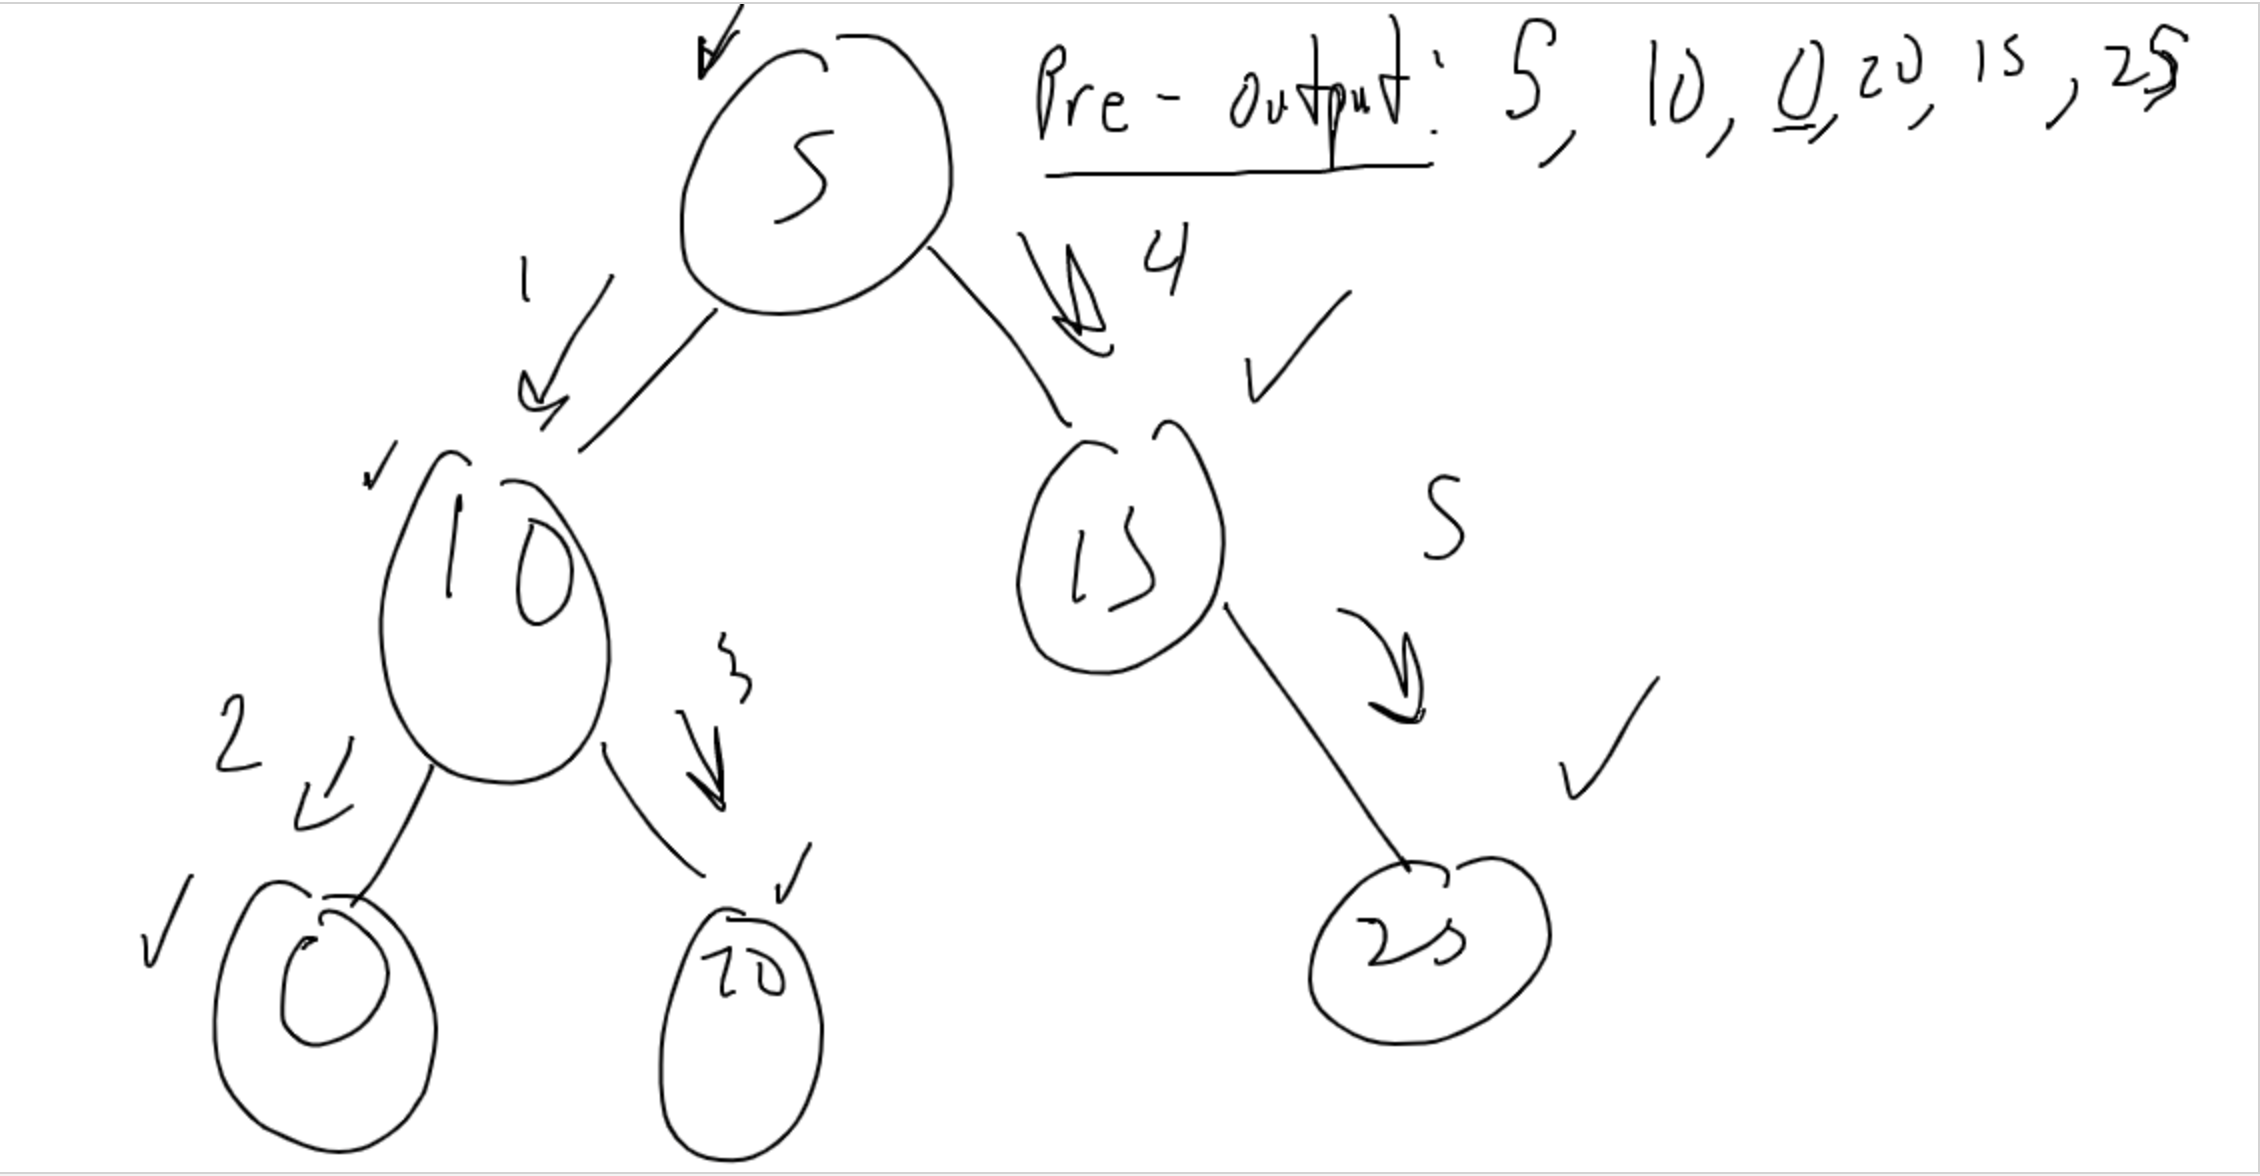 Pre-output: 5, 10, 0, 20, 15, 25
5
1
4
10
15
5
2
3
0
20
25